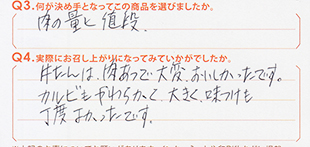 Q3.何が決め手となってこの商品を選びましたか。
肉の量と値段。
Q4.実際にお召し上がりになってみていかがでしたか。
牛たんは、肉あつで大変、おいしかったです。
カルビもやわらかくて、大きく、味つけも
丁度よかったです。